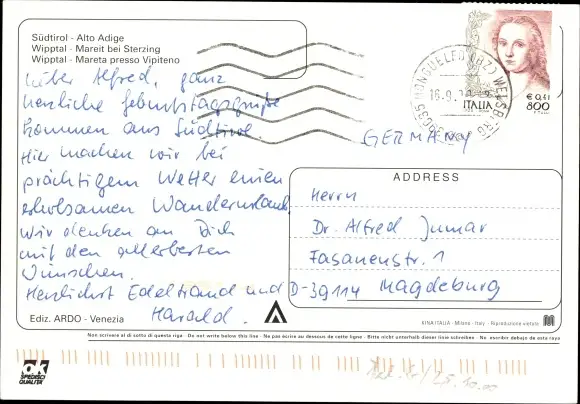 Südtirol - Alto Adige
Wipptal - Mareit bei Sterzing
Wipptal - Mareta presso Vipiteno
Lieber Alfred, ganz
herzliche Geburtstagsgrüße
kommen aus Südtirol.
Hier machen wir bei
prächtigem Wetter einen
erholsamen Wanderurlaub.
Wir denken an Dich
mit den allerbesten
Wünschen.
Herzlichst Edeltraud und
Harald.
Ediz. ARDO - Venezia
39035 MONGUELFO (BZ) WELSBERG
16.9.
ITALIA
€ 0,41
800
GERMANY
ADDRESS
Herrn
Dr. Alfred Jumar
Fasanenstr. 1
D-39114 Magdeburg
KINA ITALIA - Milano - Italy - Riproduzione vietata
Non scrivere al di sotto di questa riga - Do not write below this line - Ne pas écrire au dessous de cette ligne - Bitte nicht unterhalb dieser linie schreiben - No escribir debajo de esta raya
OK
SPEDISCI
QUALITÀ
25.10.00